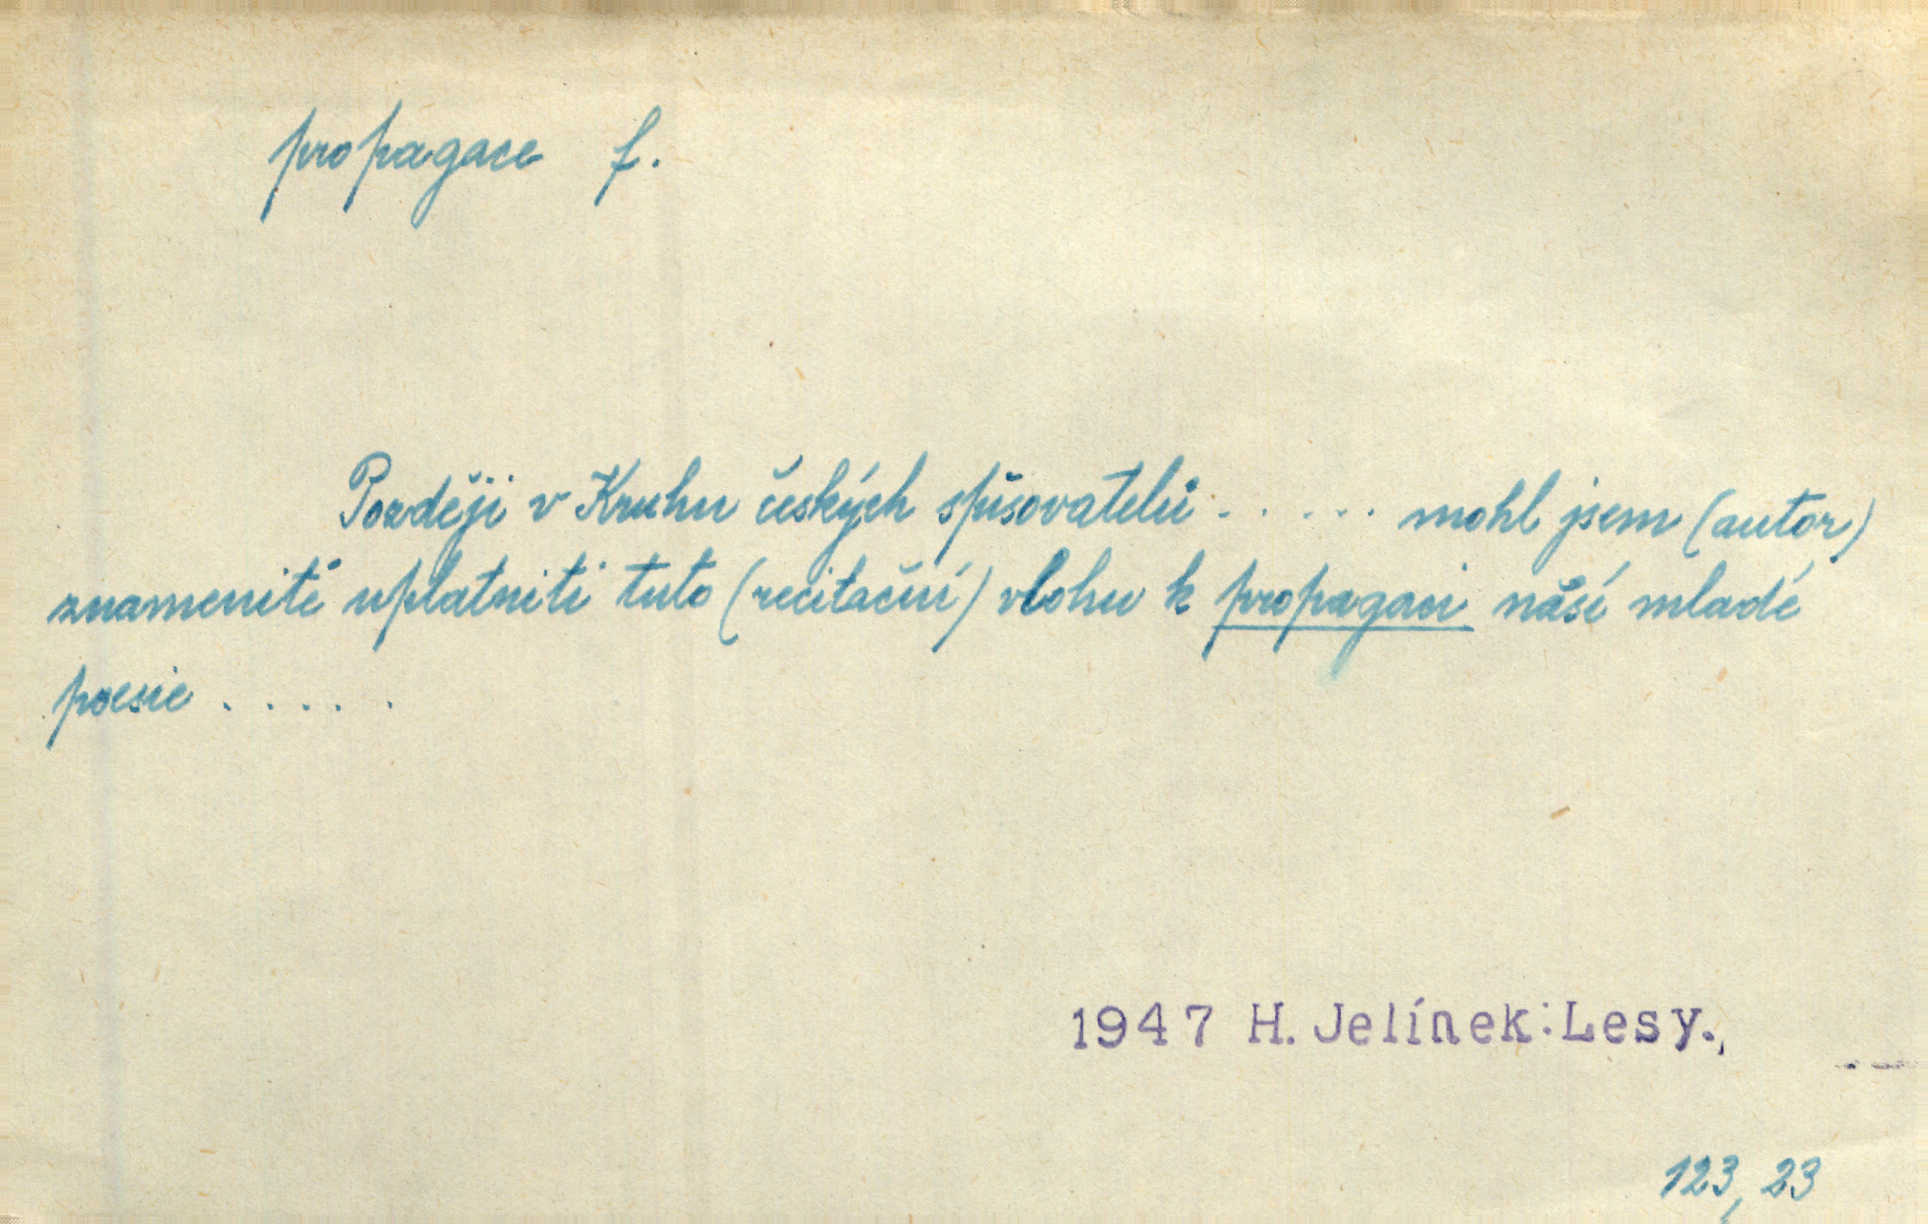 propagace f.
Později v Kruhu českých spisovatelů ..... mohl jsem (autor)
znamenitě uplatniti tuto (recitační) vlohu k propagaci naší mladé
poesie .....
1947 H. Jelínek: Lesy.,
123, 23